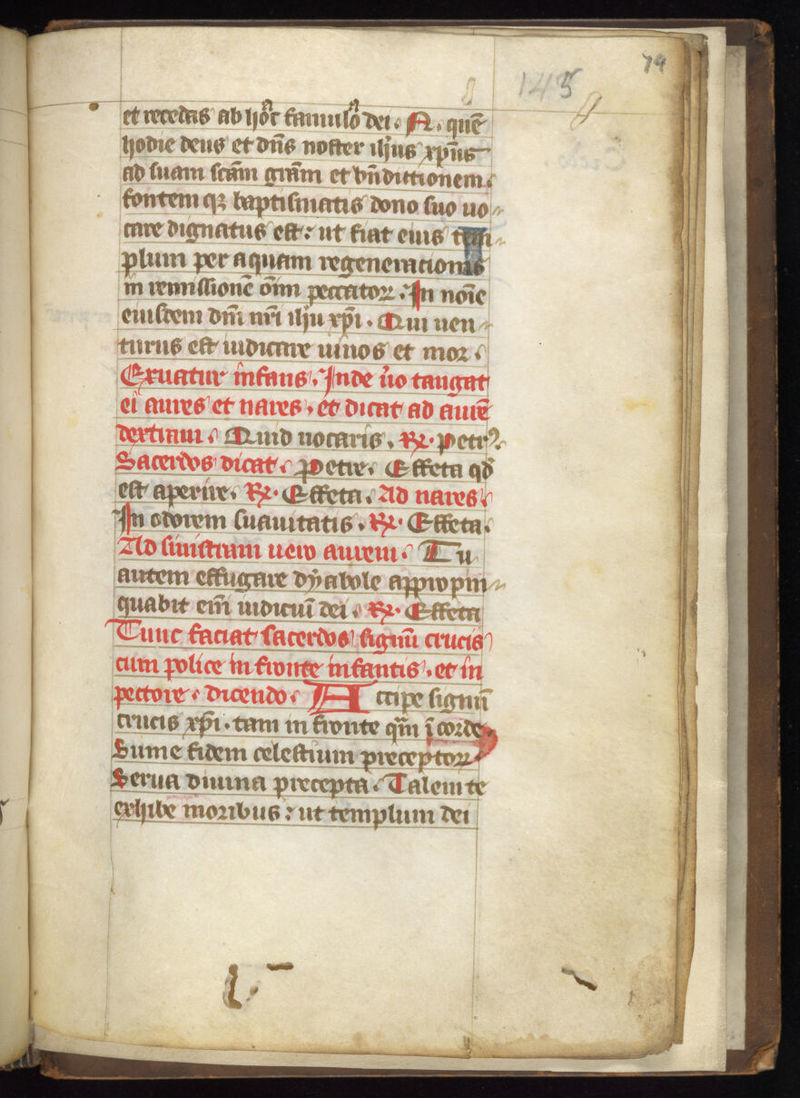 79
145
et recedas ab hoc famulo dei. N. quē
hodie deus et dn̄s noster ih̄us xp̄us
ad suam scām grām et bn̄dictionem.
fontem qꝫ baptismatis dono suo uo
care dignatus est: ut fiat eius tem
plum per aquam regenerationis
in remissionē oīm peccatoꝝ. In noīe
eiusdem dn̄i nr̄i ih̄u xp̄i. Qui uen
turus est iudicare uiuos et mor.
Exuatur infans. Inde u̾o tangat
ei aures et nares. et dicat ad aurē
dextram. Quid uocaris. ℞. Petrꝰ.
Sacerdos dicat. Petre. Effeta qd̄
est aperire. ℞. Effeta. Ad nares.
In odorem suauitatis. ℞. Effeta.
Ad sinistram uero aurem. Tu
autem effugare dyabole appropin
quabit em̄ iudiciū dei. ℞. Effeta
Tunc faciat sacerdos signū crucis
cum police in fronte infantis. et in
pectore. dicendo. Accipe signū
crucis xp̄i. tam in fronte qm̄ ī corde.
Sume fidem celestium preceptoꝝ
Serua diuina precepta. Talem te
exhibe moribus: ut templum dei